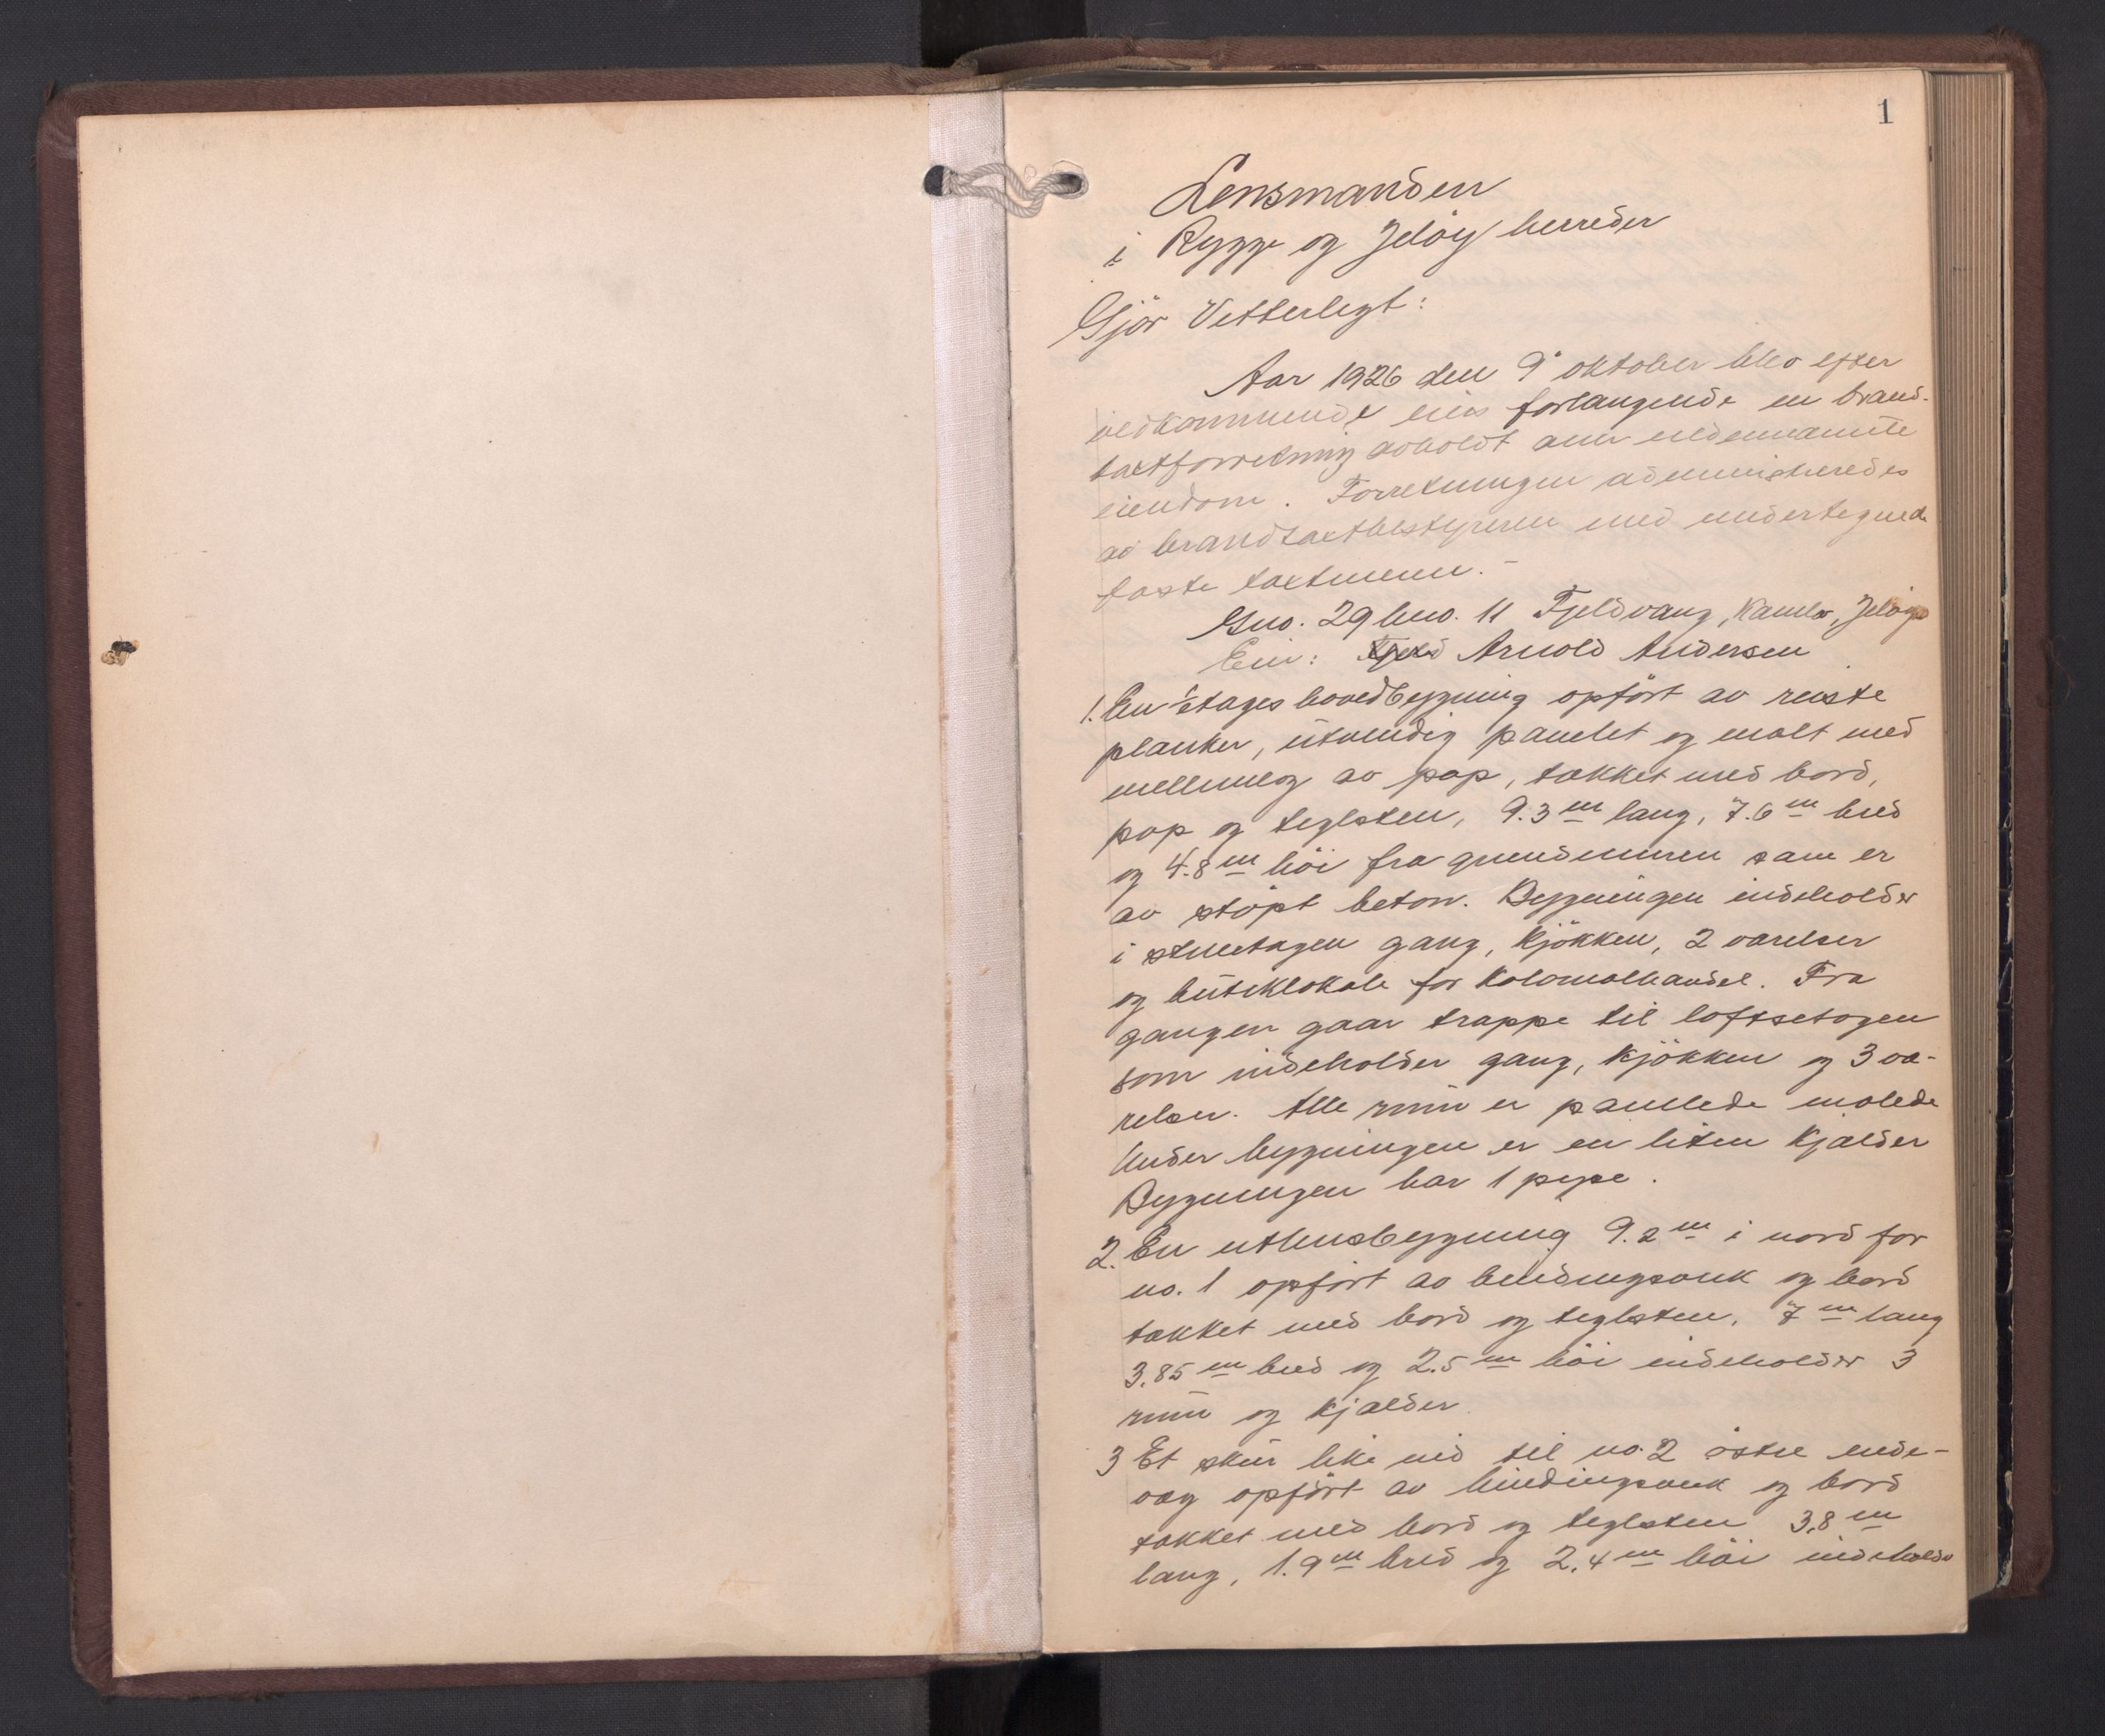 1
Lensmanden
i Rygge og Jeløy herreder
Gjör Vitterligt:
Aar 1926 den 9' oktober blev efter
vedkommende eiers forlangende en brand-
taxtforretning avholdt over nedennævnte
eiendom. Forretningen administreredes
av brandtaxtbestyreren med undertegnede
faste taxtmenn.-
Gno. 29 bno. 11 Fjeldvang, Kambo, Jeløy
Eier: Arnold Andersen
1. En etages hovedbygning opfört av reiste
planker, utvendig panelet og malt med
mellemlæg av pap, tækket med bord,
pap og teglsten, 9.3 m lang, 7.6 m bred
og 4.8 m höi fra grundmuren som er
av støpt beton. Bygningen indeholder
i stueetagen gang, kjökken, 2 værelser
og butiklokale for kolonialhandel. Fra
gangen gaar trappe til loftsetagen
som indeholder gang, kjökken og 3 væ-
relser. Alle rum er panelede malede
Under bygningen er en liten kjælder
Bygningen har 1 pipe.
2. En uthusbygning 9.2 m i nord for
no. 1 opfört av bindingsverk og bord
tækket med bord og teglsten, 7 m lang
3.85 m bred og 2.5 m höi indeholder 3
rum og kjælder.
3 Et skur like ved til no. 2 östre ende-
væg opfört av bindingsverk og bord
tækket med bord og teglsten 3,8 m
lang, 1.9 m bred og 2.4 m höi indeholder